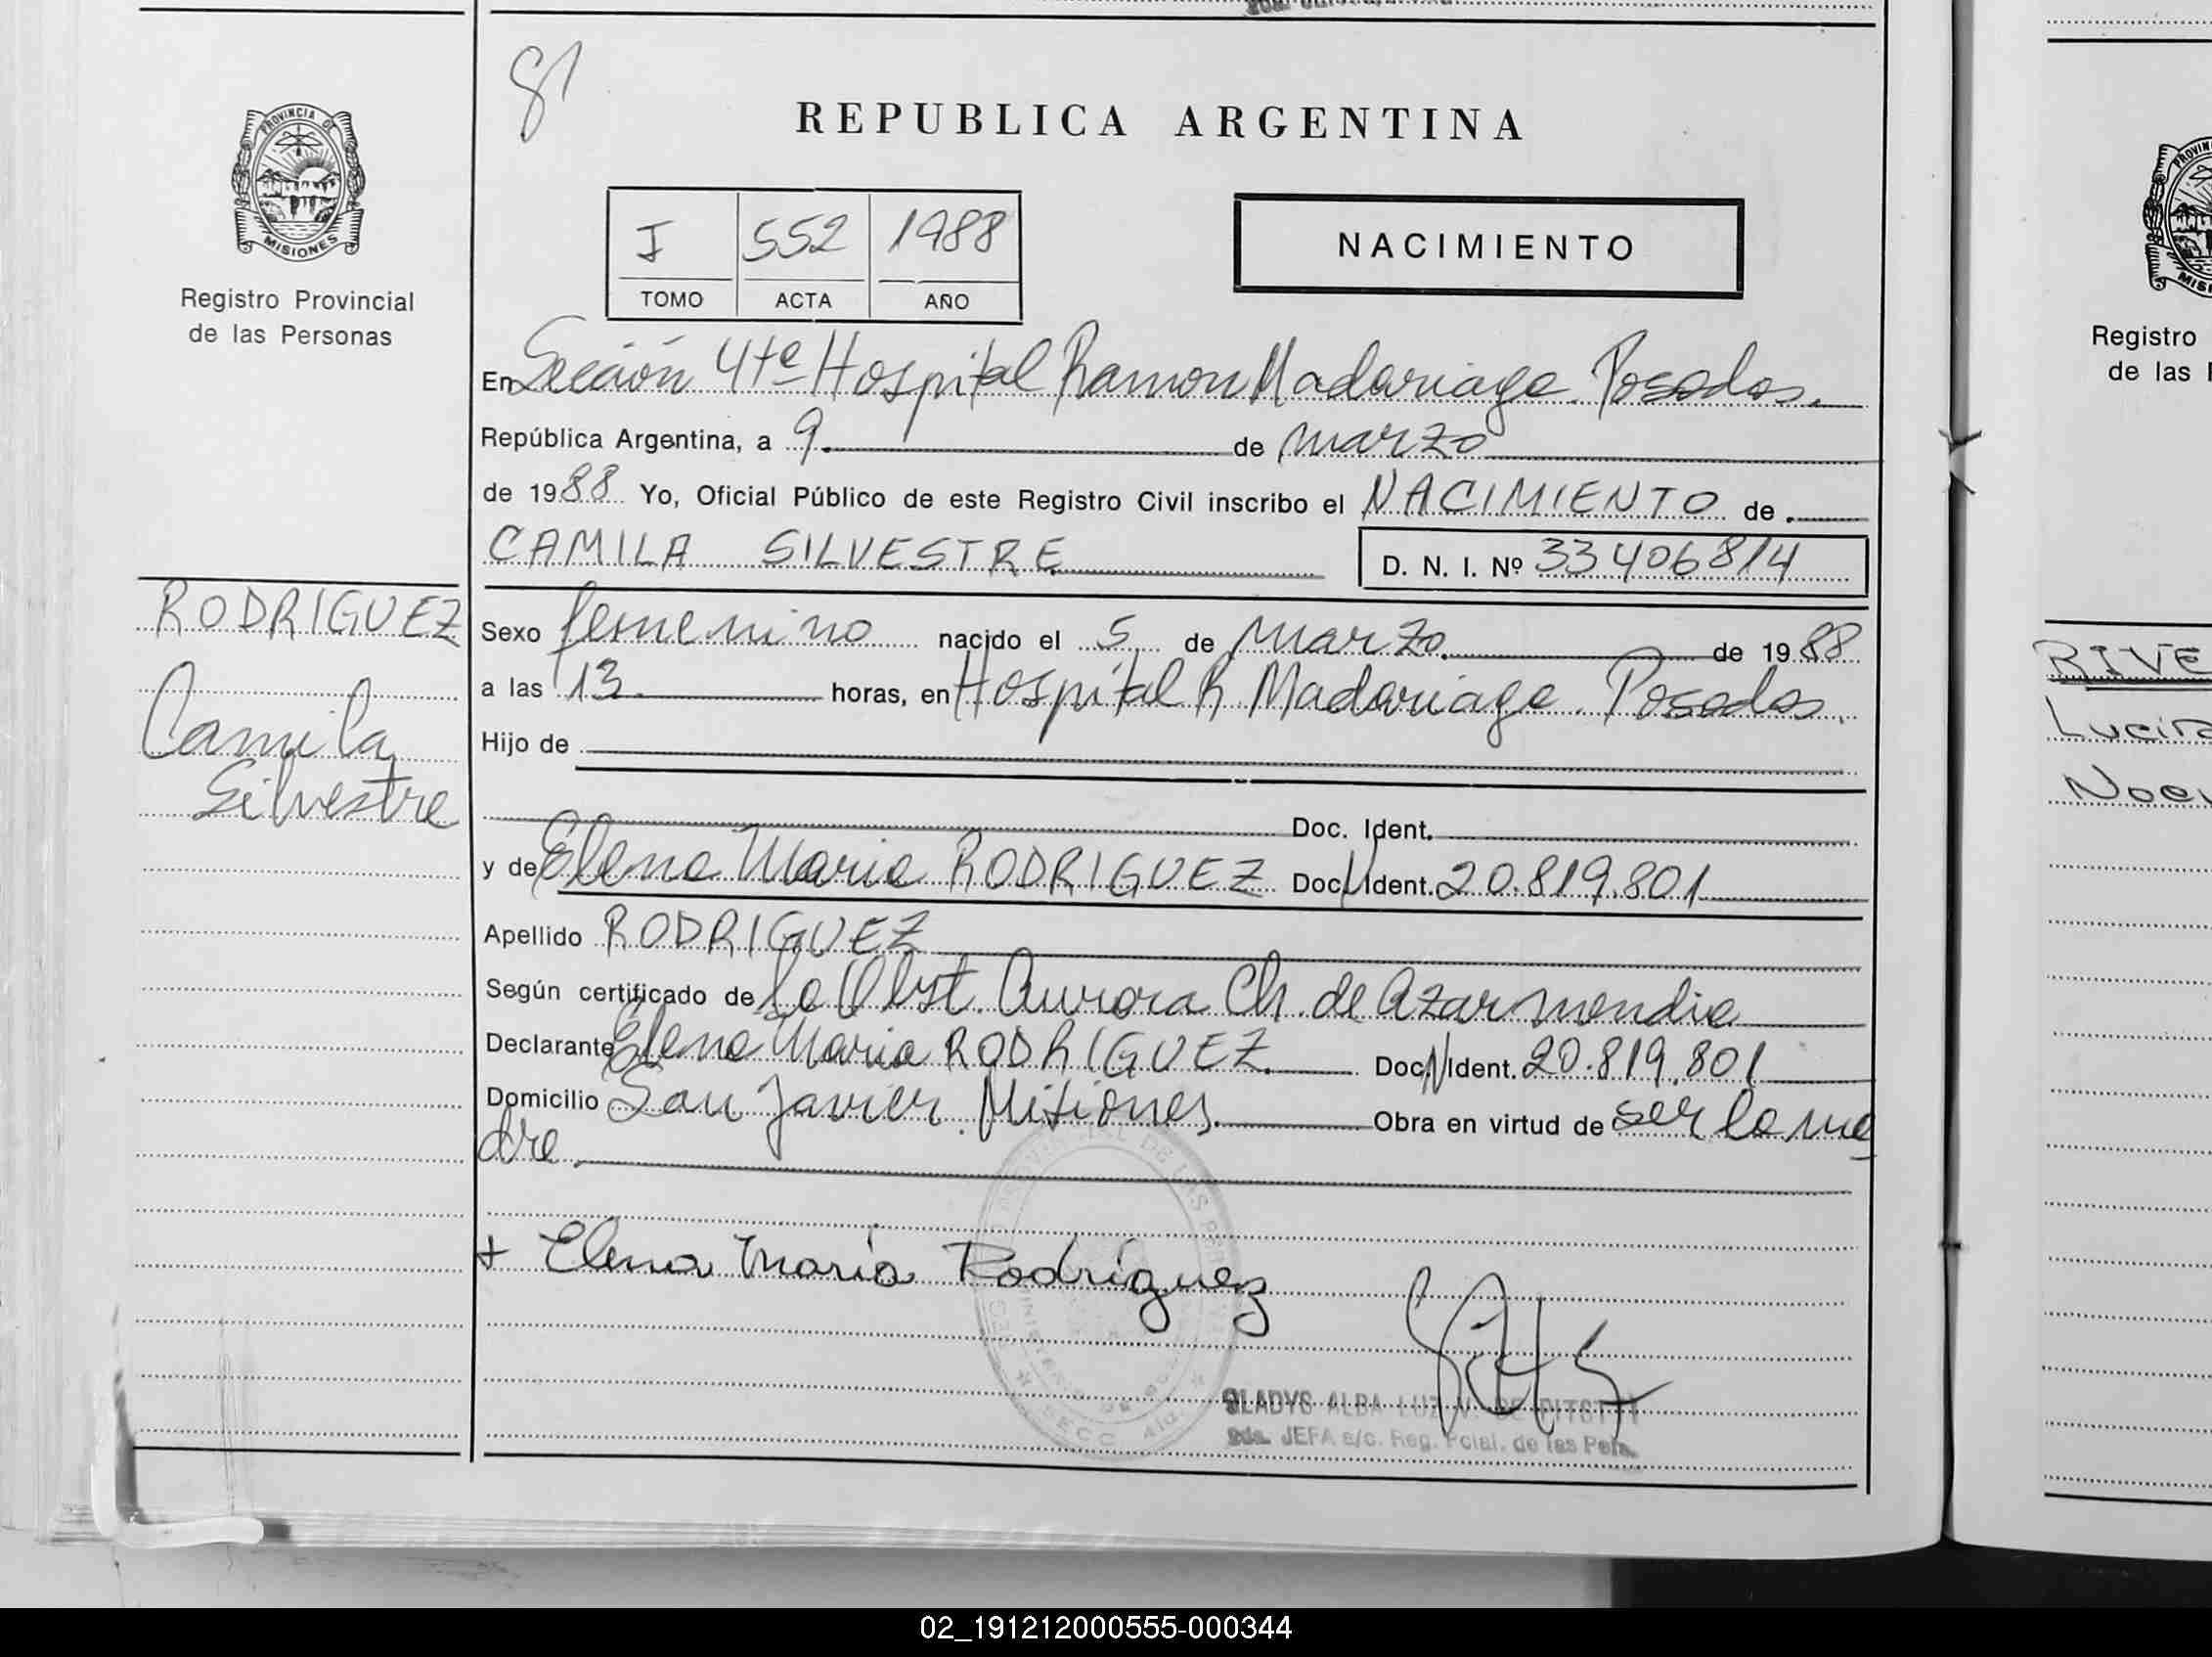 81
REPUBLICA ARGENTINA
PROVINCIA DE
MISIONES
Registro Provincial
de las Personas
I 552 1988
TOMO ACTA AÑO
NACIMIENTO
En Sección 4ta Hospital Ramon Madariaga. Posadas.
República Argentina, a 9. de marzo
de 1988 Yo, Oficial Público de este Registro Civil inscribo el NACIMIENTO de
CAMILA SILVESTRE D. N. I. Nº 33406814
RODRIGUEZ
Camila
Silvestre
Sexo femenino nacido el 5 de marzo. de 1988
a las 13. horas, en Hospital R. Madariaga. Posadas.
Hijo de
Doc. Ident.
y de Elena Maria RODRIGUEZ Doc. N Ident. 20.819.801
Apellido RODRIGUEZ
Según certificado de la Obst. Aurora Ch. de Azarmendia
Declarante Elena Maria RODRIGUEZ. Doc. N Ident. 20.819.801
Domicilio San Javier. Misiones. Obra en virtud de ser la ma
dre.
+ Elena María Rodríguez
GLADYS ALBA LUZ V. DE
2da. JEFA a/c. Reg. Pcial. de las Pers.
SECC 4ta.
Registro
de las
RIVE
Lucia
Noe
02_191212000555-000344